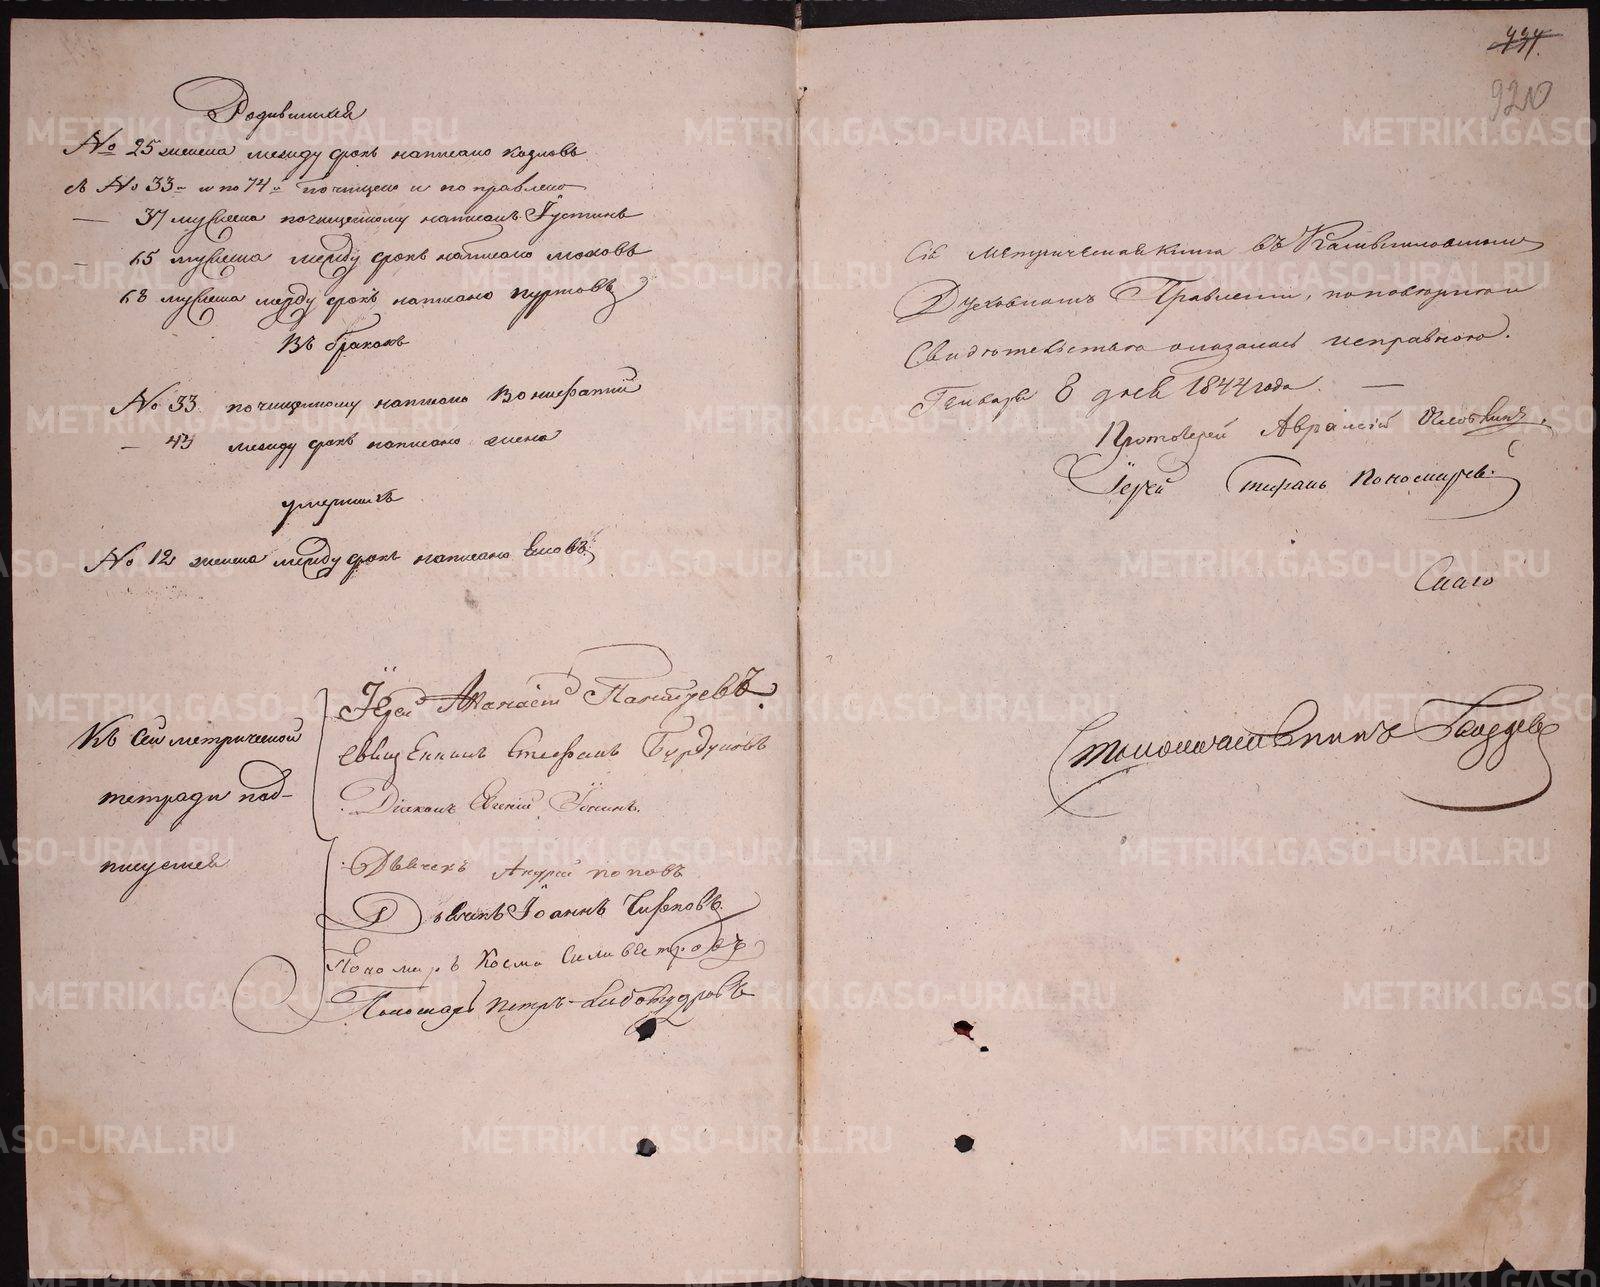 Родившихся
№ 25 женска между срокъ написано козловъ
съ № 33го и по 74й почищено и поправлено
— 37 мужеска почищенному написанъ Іустинъ
— 65 мужеска между срокъ написано моховъ
68 мужеска между срокъ написано пуртовъ
Въ бракахъ
№ 33 почищенному написано Вонифатій
— 43 между срокъ написано жена
умершихъ
№ 12 женска между срокъ написано
Къ сей метрической
тетради под-
писуемся
Іерей Аѳанасій
Священникъ Стефанъ
Діаконъ Евгеній
Дьячекъ Андрей поповъ
Дьячекъ Іоаннъ
Пономарь Косма Силивестровъ
Пономарь петръ
434.
920
Сія метрическая книга въ Камышловскомъ
Духовномъ Правленіи, по повторительном
Свидѣтельствѣ оказалась исправною.
Генваря 8 дня 1844 года. —
Протоіерей Аврамій
Іерей Стефанъ Пономаревъ.
Столоначальникъ
METRIKI.GASO-URAL.RU